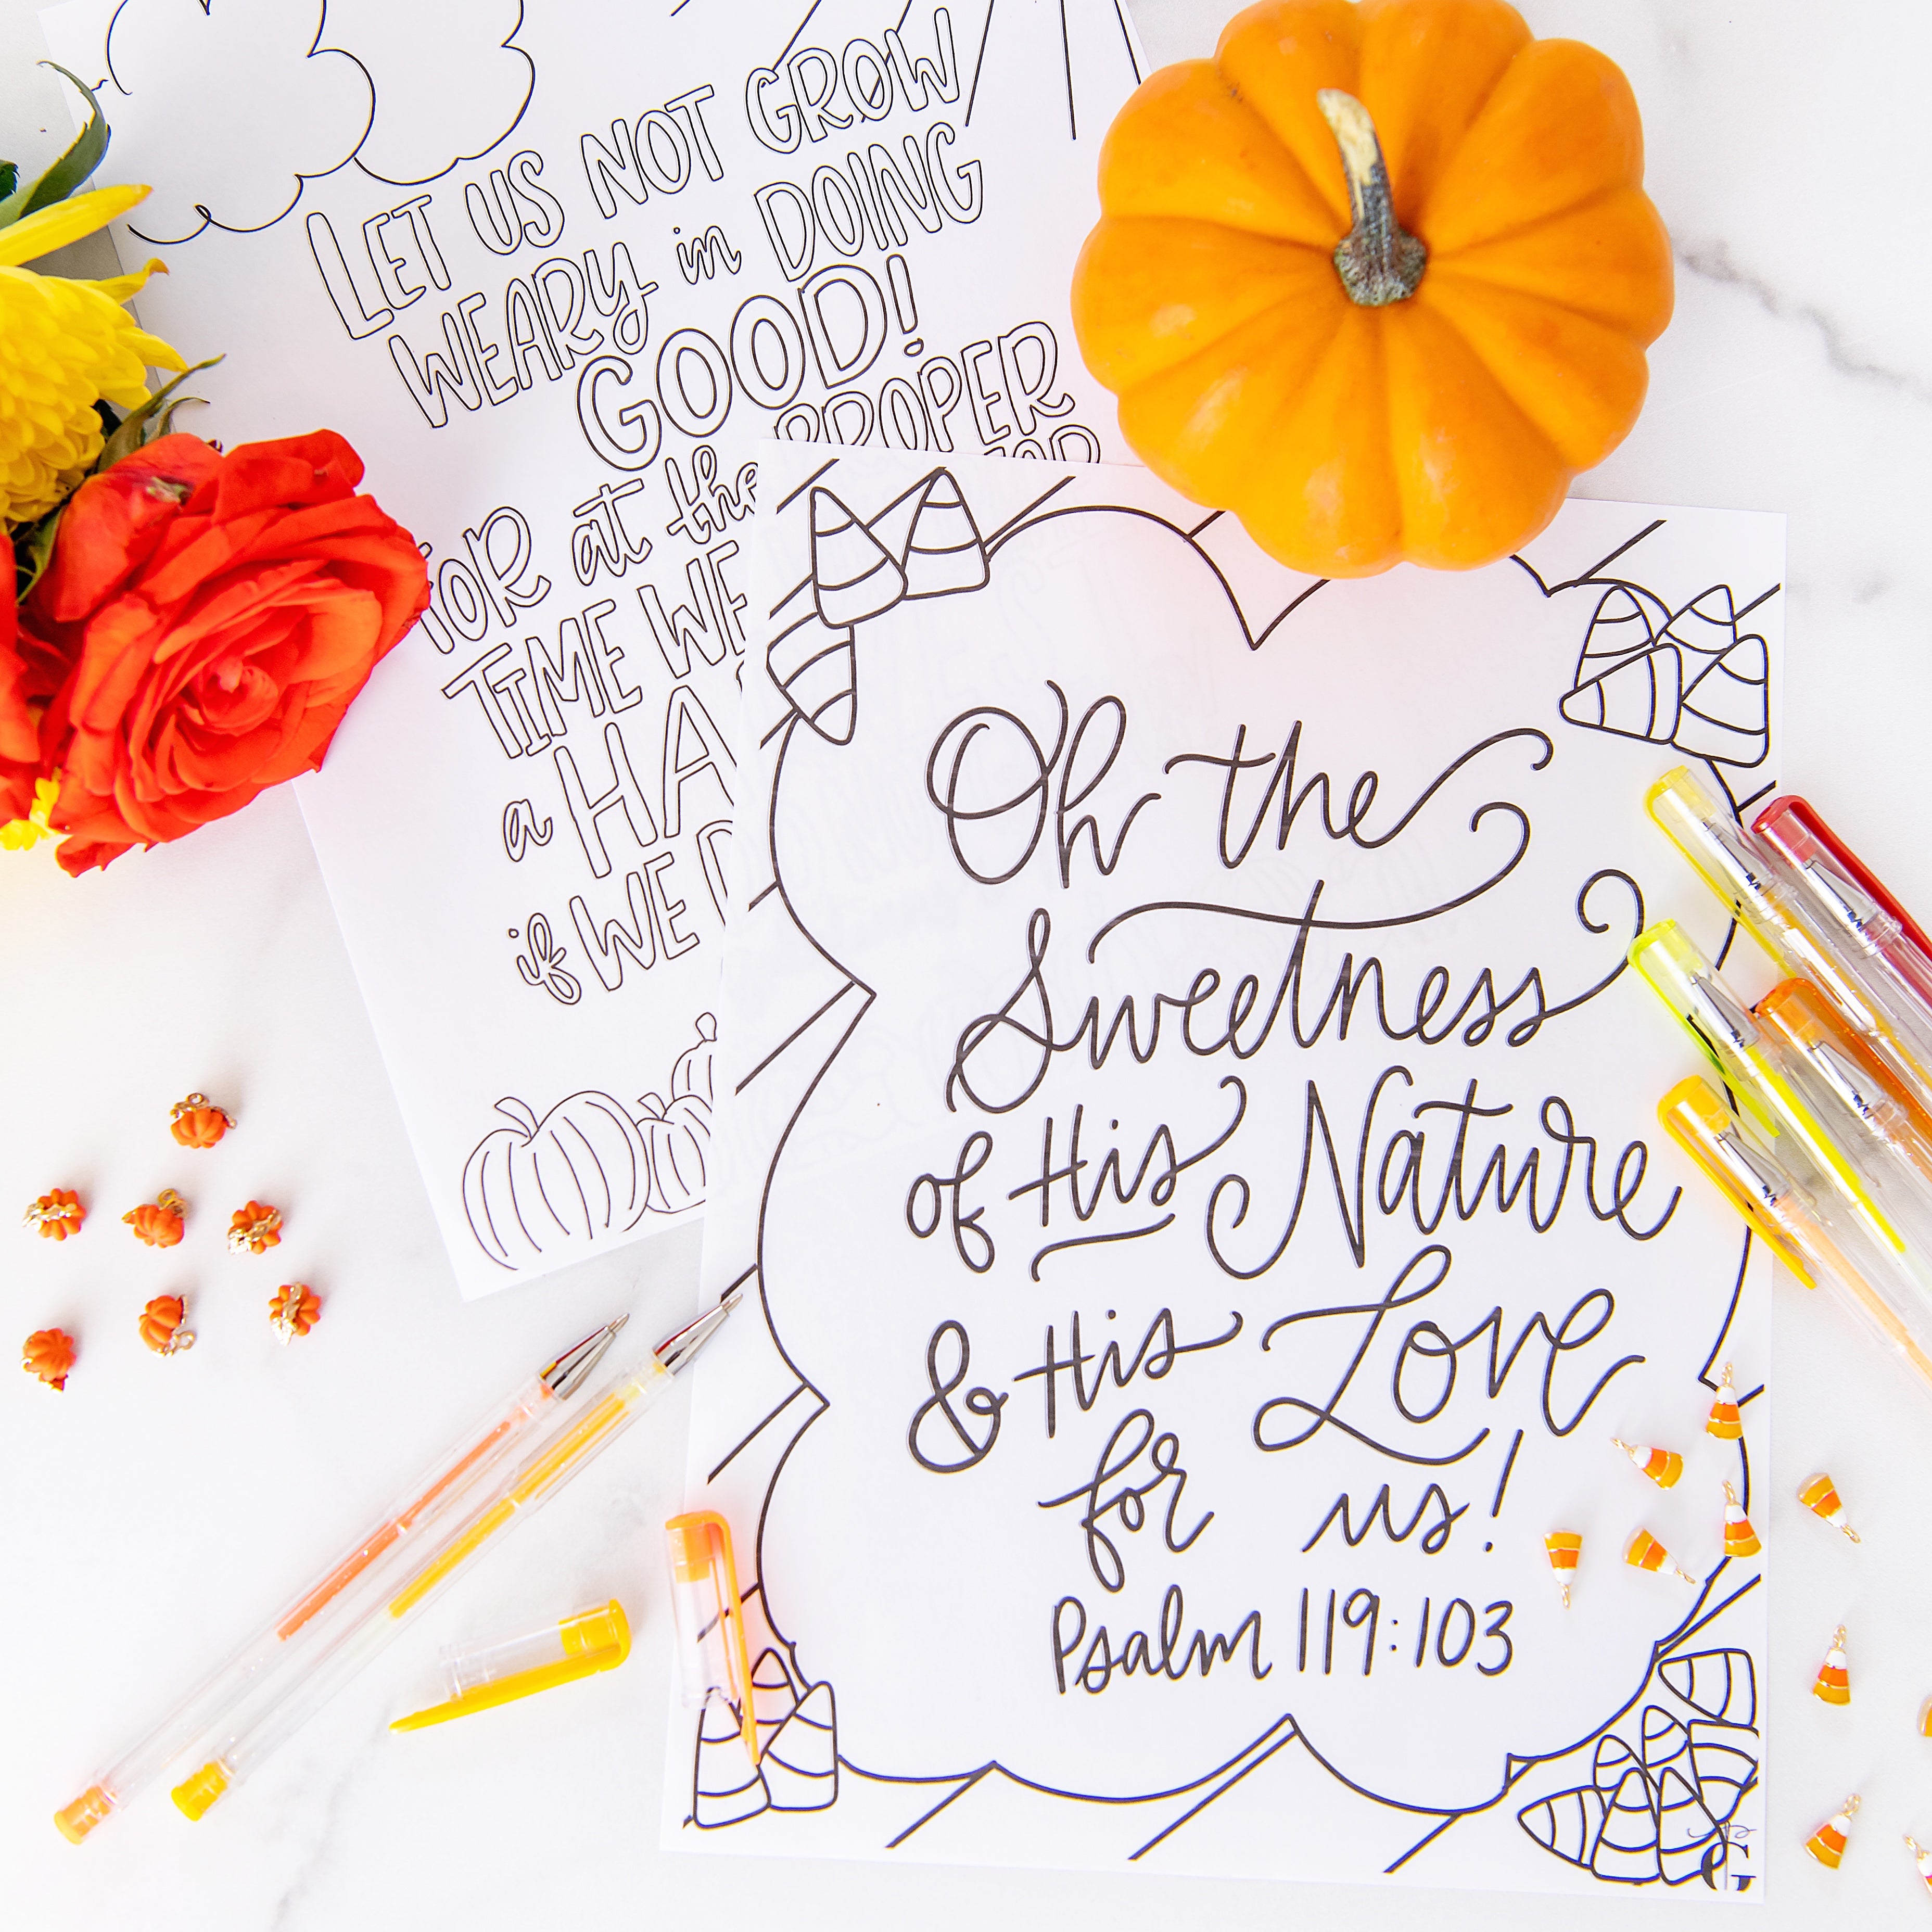 LET US NOT GROW
WEARY in DOING
GOOD!
FOR at the PROPER
TIME WE
a
if WE
Oh the
Sweetness
of His Nature
& His Love
for us!
Psalm 119:103